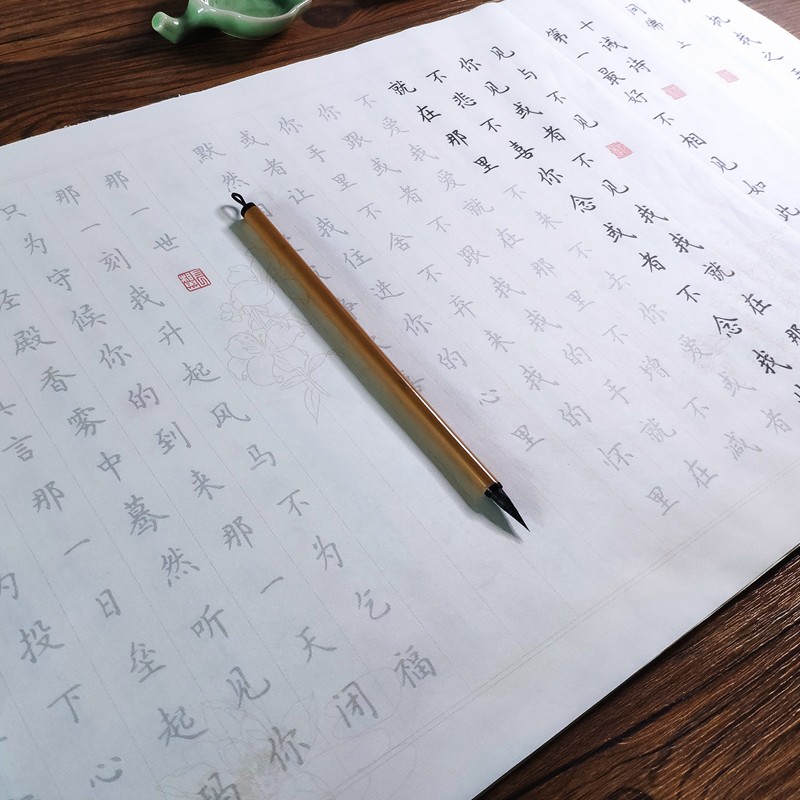 问佛上
十诫诗
第一最好不相见如此
见与不见
你见或者不见我我就在那
不悲不喜你念或者不念我
就在那里不来不去你爱或者
不爱我爱就在那里不增不减
你跟或者不跟我我的手就在
你手里不舍不弃来我的怀里
或者让我住进你的心里
默然
那一世
那一刻我升起风马不为乞福
只为守候你的到来那一天闭
殿香雾中蓦然听见你
言那一日垒起玛
为投下心